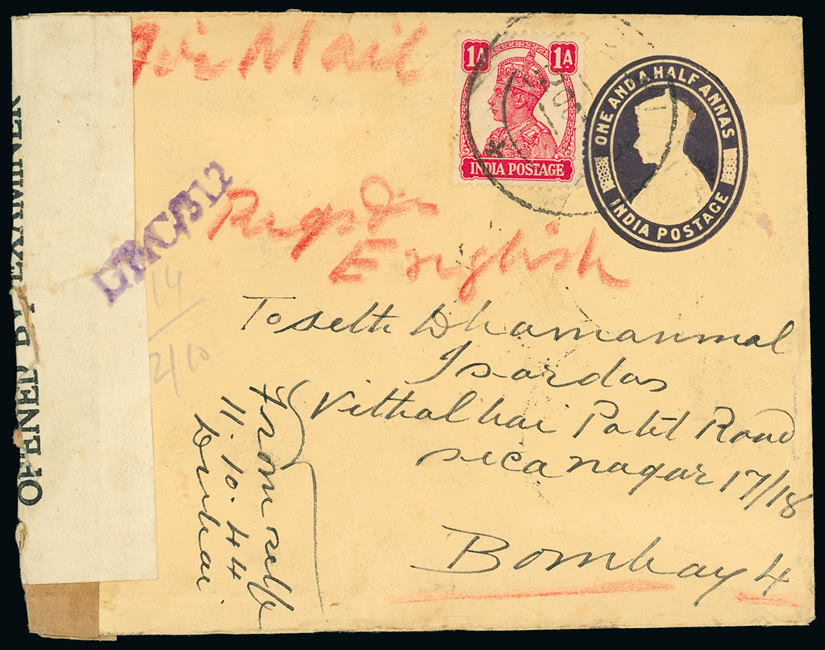 Air Mail
1A 1A
INDIA POSTAGE
ONE AND A HALF ANNAS
INDIA POSTAGE
OPENED BY EXAMINER
English
14
2/10
To Seth Dhamanmal
Isardas
Vithalbhai Patel Road
sica nagar 17/18
Bombay 4
From self
11.10.44
Dubai